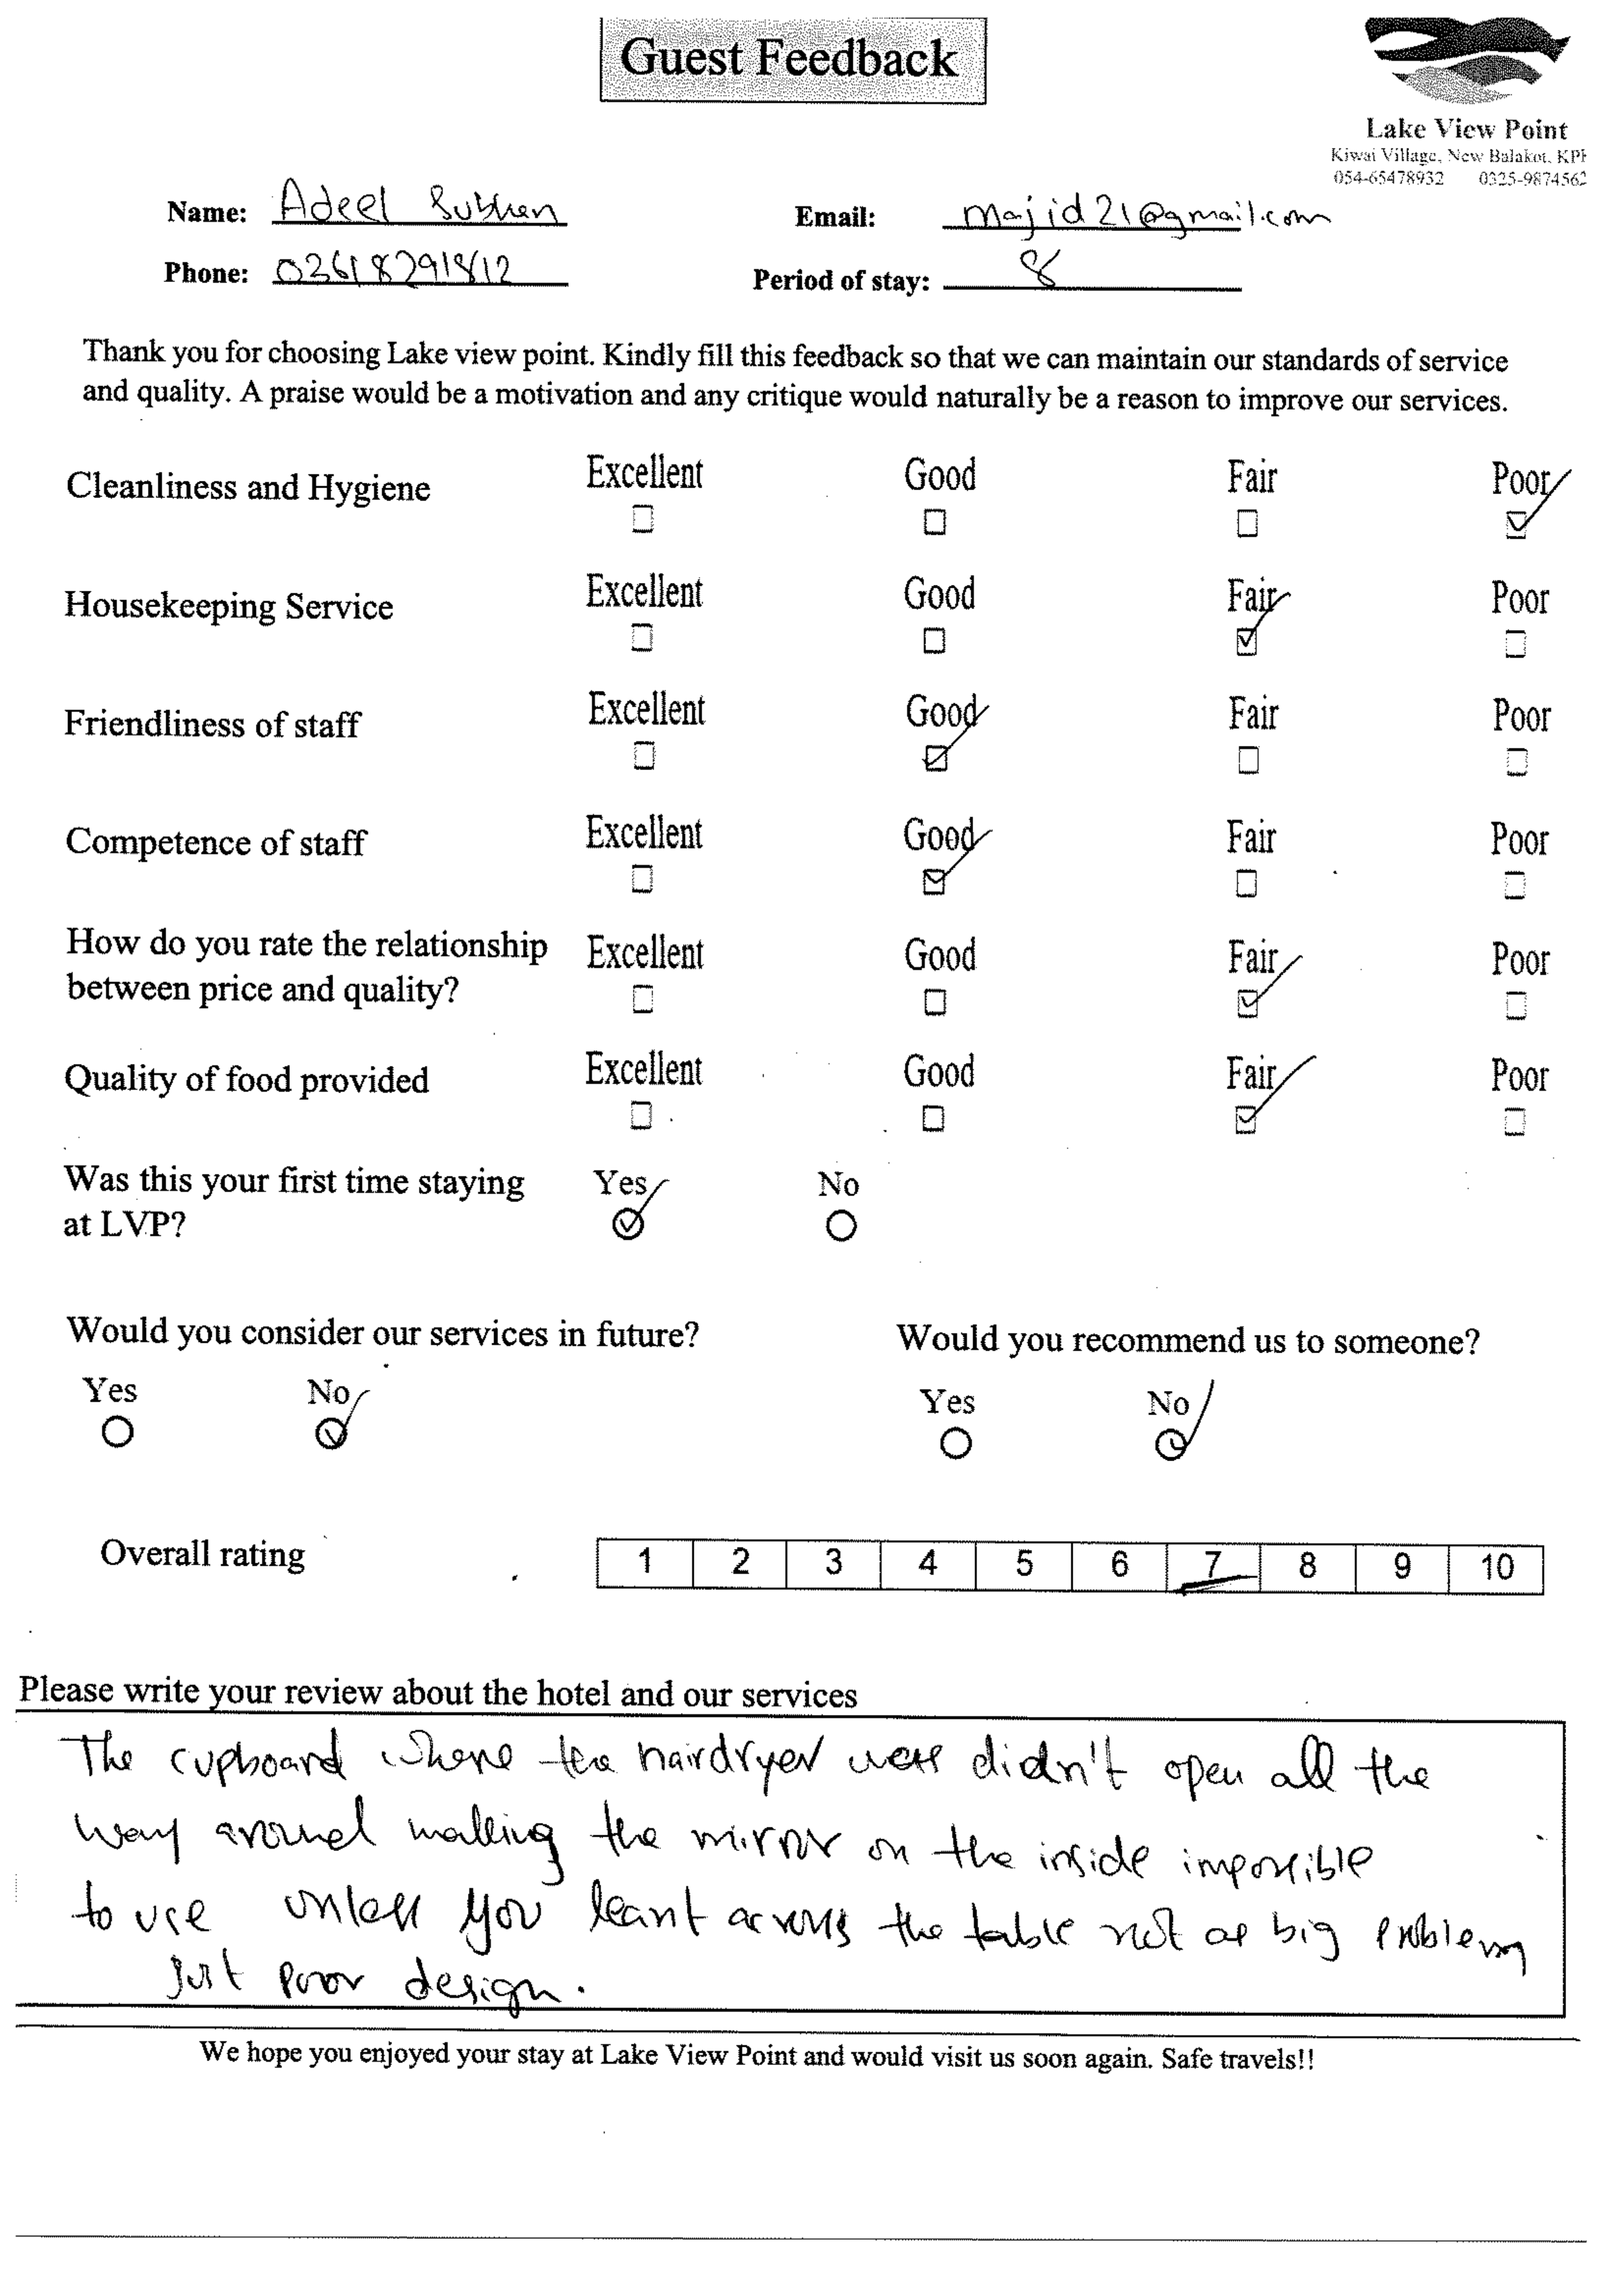 Guest Feedback
Lake View Point
Kiwai Village, New Balakot, KPK
054-65478932 0325-9874562
Name: Adeel Email: majid21@gmail.com
Phone: 03618291812 Period of stay: 8
Thank you for choosing Lake view point. Kindly fill this feedback so that we can maintain our standards of service
and quality. A praise would be a motivation and any critique would naturally be a reason to improve our services.
Cleanliness and Hygiene Excellent Good Fair Poor
Housekeeping Service Excellent Good Fair Poor
Friendliness of staff Excellent Good Fair Poor
Competence of staff Excellent Good Fair Poor
How do you rate the relationship
between price and quality? Excellent Good Fair Poor
Quality of food provided Excellent Good Fair Poor
Was this your first time staying
at LVP? Yes No
Would you consider our services in future? Would you recommend us to someone?
Yes No Yes No
Overall rating 1 2 3 4 5 6 7 8 9 10
Please write your review about the hotel and our services
The cupboard where the hairdryer were didn't open all the
way around making the mirror on the inside impossible
to use unless you leant across the table not a big problem
just poor design.
We hope you enjoyed your stay at Lake View Point and would visit us soon again. Safe travels!!